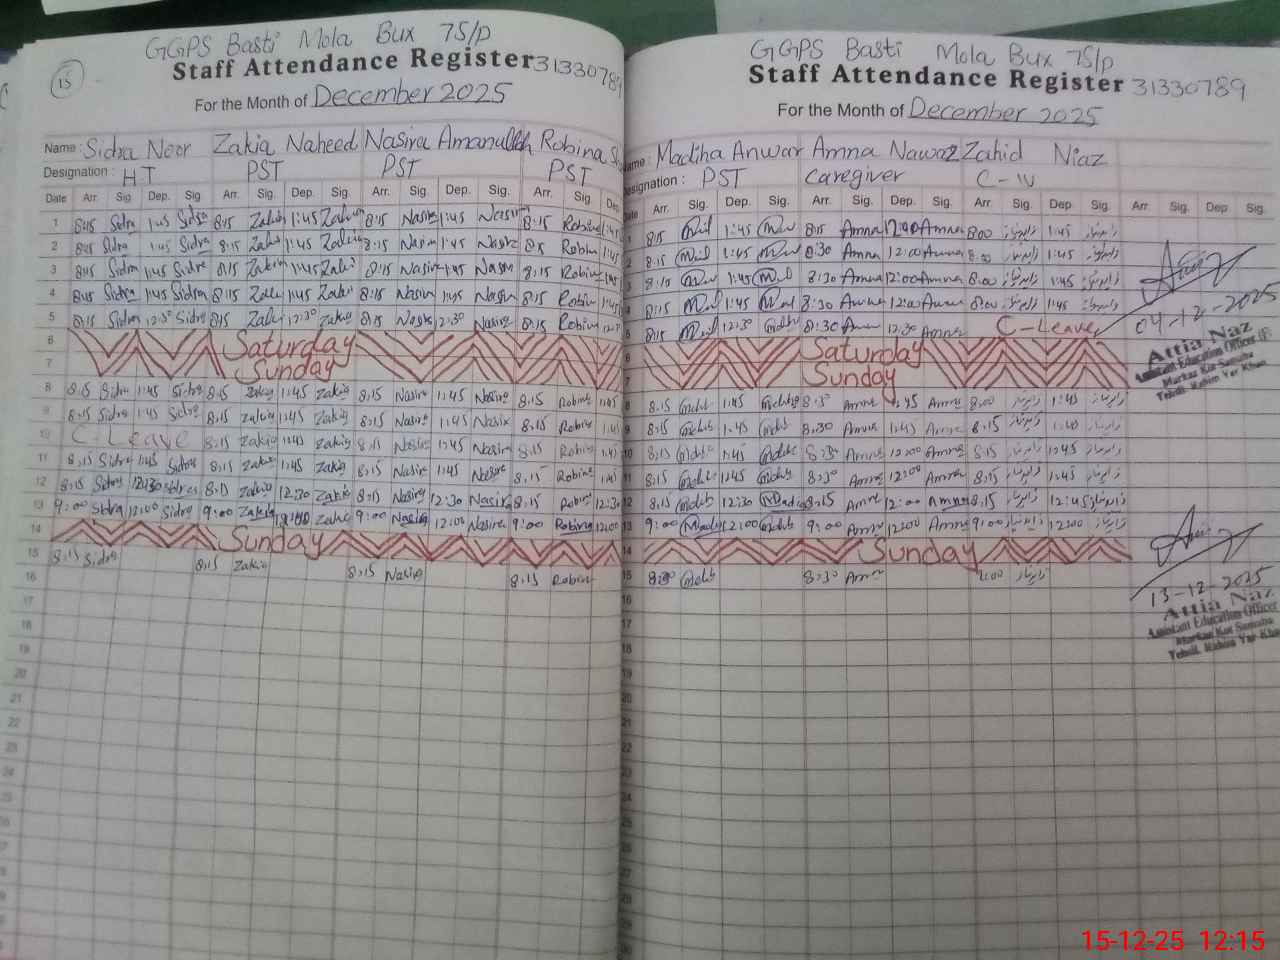 GGPS Basti Mola Bux 75/P
Staff Attendance Register 31330789
15
For the Month of December 2025
Name : Sidra Noor Zakia Naheed Nasira Amanullah Robina
Designation : HT PST PST PST
Date Arr. Sig. Dep. Sig. Arr. Sig. Dep. Sig. Arr. Sig. Dep. Sig. Arr. Sig. Dep.
1 8:15 Sidra 1:45 Sidra 8:15 Zakia 1:45 Zakia 8:15 Nasira 1:45 Nasira 8:15 Robina 1:45
2 8:15 Sidra 1:45 Sidra 8:15 1:45 8:15 Nasira 1:45 8:15 Robin 1:45
3 8:15 Sidra 1:45 Sidra 8:15 Zakia 1:45 8:15 Nasira 1:45 8:15 Robin 1:45
4 8:15 Sidra 1:45 Sidra 8:15 1:45 8:15 Nasira 1:45 8:15 Robin 1:45
5 8:15 Sidra 12:30 Sidra 8:15 12:30 Zakia 8:15 12:30 Nasira 8:15 Robin
6 Saturday
7 Sunday
8 8:15 Sidra 1:45 Sidra 8:15 Zakia 1:45 Zakia 8:15 Nasira 1:45 Nasira 8:15 Robina 1:45
9 8:15 Sidra 1:45 Sidra 8:15 Zakia 1:45 Zakia 8:15 Nasira 1:45 Nasira 8:15 Robina 1:45
10 C-Leave 8:15 Zakia 1:45 Zakia 8:15 Nasira 1:45 Nasira 8:15 Robina 1:45
11 8:15 Sidra 1:45 Sidra 8:15 Zakia 1:45 Zakia 8:15 Nasira 1:45 Nasira 8:15 Robina 1:45
12 8:15 Sidra 12:30 Sidra 8:15 Zakia 12:30 Zakia 8:15 Nasira 12:30 Nasira 8:15 Robina
13 9:00 Sidra 12:00 Sidra 9:00 Zakia Zakia 9:00 Nasira 12:00 Nasira 9:00 Robina 12:00
14 Sunday
15 8:15 Sidra 8:15 Zakia 8:15 Nasira 8:15 Robina
16
17
18
19
20
21
22
23
24
25
GGPS Basti Mola Bux 75/P
Staff Attendance Register 31330789
For the Month of December 2025
Name : Madiha Anwar Amna Nawaz Zahid Niaz
Designation : PST Caregiver C-IV
Date Arr. Sig. Dep. Sig. Arr. Sig. Dep. Sig. Arr. Sig. Dep. Sig. Arr. Sig. Dep. Sig.
1 8:15 1:45 8:15 Amna 12:00 Amna 8:00 زاہد نیاز 1:45 زاہد نیاز
2 8:15 1:45 8:30 Amna 12:00 Amna 8:00 زاہد نیاز 1:45 زاہد نیاز
3 8:15 1:45 8:30 Amna 12:00 Amna 8:00 زاہد نیاز 1:45 زاہد نیاز
4 8:15 1:45 8:30 Amna 12:00 Amna 8:00 زاہد نیاز 1:45 زاہد نیاز
5 8:15 12:30 8:30 Amna 12:30 Amna C-Leave
04-12-2025
Attia Naz
Assistant Education Officer (F)
Markaz Kot Samaba
Tehsil. Rahim Yar Khan
6 Saturday
7 Sunday
8 8:15 1:45 8:30 Amna 1:45 Amna 8:00 زاہد نیاز 1:45 زاہد نیاز
9 8:15 1:45 8:30 Amna 1:45 Amna 8:15 زاہد نیاز 1:40 زاہد نیاز
10 8:15 1:45 8:30 Amna 12:00 Amna 8:15 زاہد نیاز 1:45 زاہد نیاز
11 8:15 1:45 8:30 Amna 12:00 Amna 8:15 زاہد نیاز 1:45 زاہد نیاز
12 8:15 12:30 8:15 Amna 12:00 Amna 8:15 زاہد نیاز 12:45 زاہد نیاز
13 9:00 12:00 9:00 Amna 12:00 Amna 9:00 زاہد نیاز 12:00 زاہد نیاز
14 Sunday
15 8:30 Amna زاہد نیاز
13-12-2025
Attia Naz
Assistant Education Officer
Markaz Kot Samaba
Tehsil. Rahim Yar Khan
16
17
18
19
20
21
22
23
24
25
15-12-25 12:15